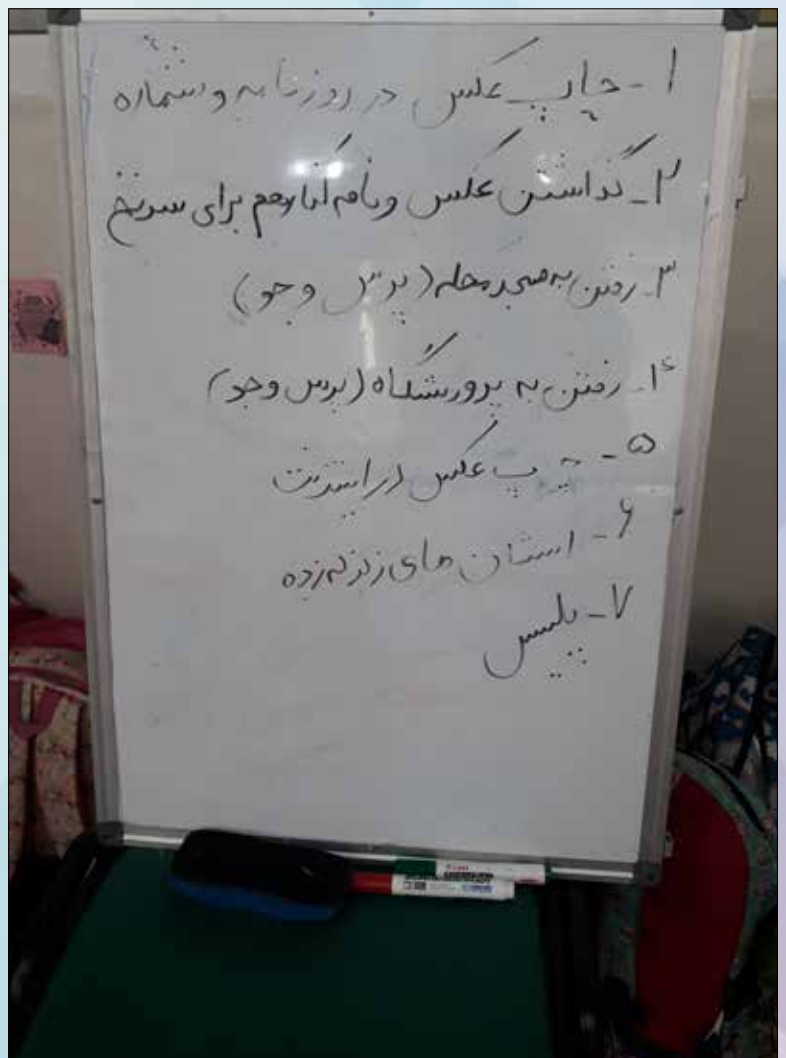 ۱- چاپ عکس در روزنامه و شماره
۲- گذاشتن عکس و نامه کنار هم برای سرنخ
۳- رفتن به مسجد محله (پرس و جو)
۴- رفتن به پرورشگاه (پرس و جو)
۵- چاپ عکس در اینترنت
۶- استان های زلزله زده
۷- پلیس